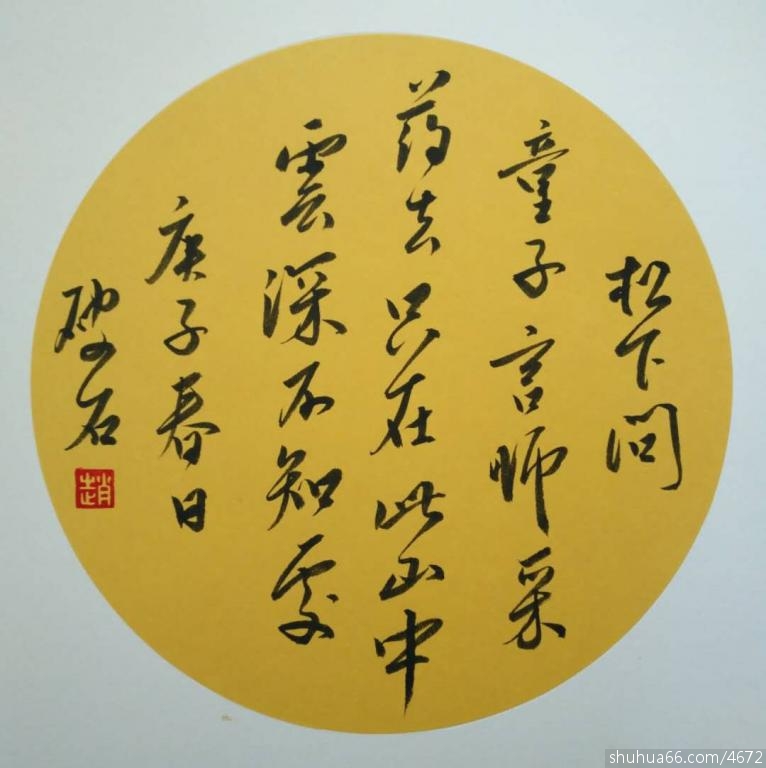 松下問
童子言師采
药去只在此山中
雲深不知處
庚子春日
硬石
趙
shuhua66.com/4672